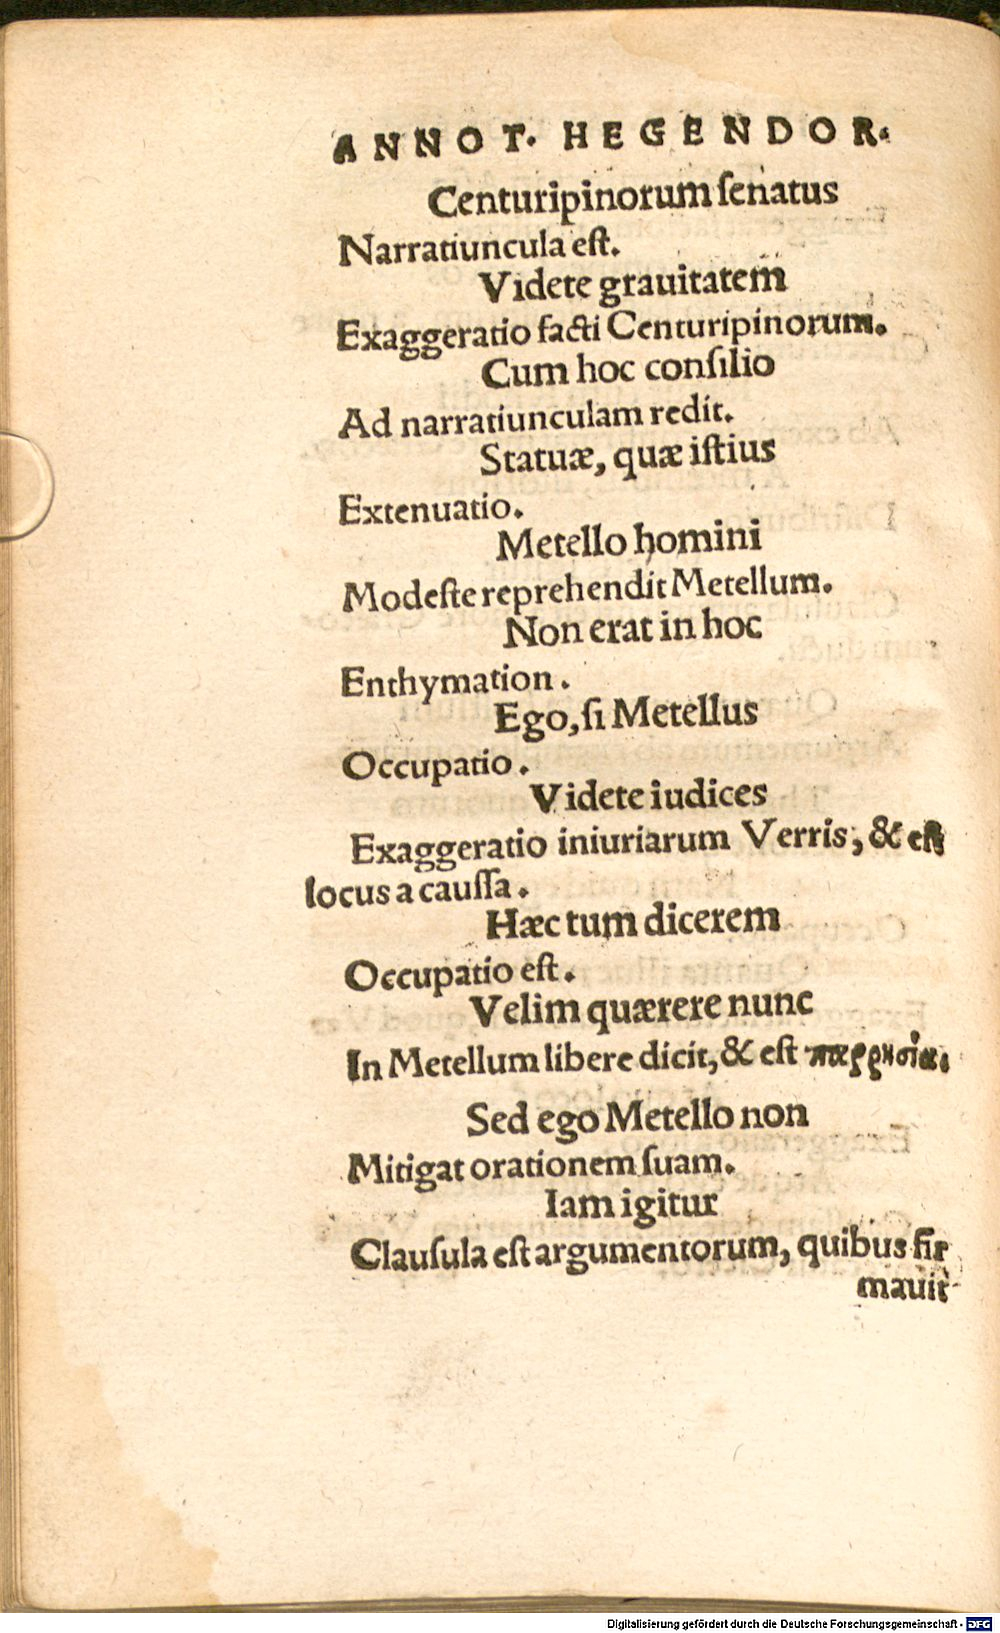 ANNOT. HEGENDOR.
Centuripinorum ſenatus
Narratiuncula eſt.
Videte grauitatem
Exaggeratio facti Centuripinorum.
Cum hoc conſilio
Ad narratiunculam redit.
Statuæ, quæ iſtius
Extenuatio.
Metello homini
Modeſte reprehendit Metellum.
Non erat in hoc
Enthymation.
Ego, ſi Metellus
Occupatio.
Videte iudices
Exaggeratio iniuriarum Verris, & eſt
locus a cauſſa.
Hæc tum dicerem
Occupatio eſt.
Velim quærere nunc
In Metellum libere dicit, & eſt παρρησία.
Sed ego Metello non
Mitigat orationem ſuam.
Iam igitur
Clauſula eſt argumentorum, quibus fir
mauit
Digitalisierung gefördert durch die Deutsche Forschungsgemeinschaft - DFG